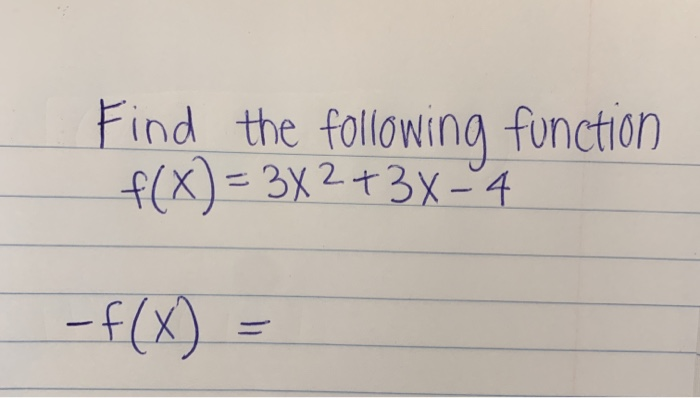 Find the following function
f(x) = 3x2 + 3x - 4
-f(x) =